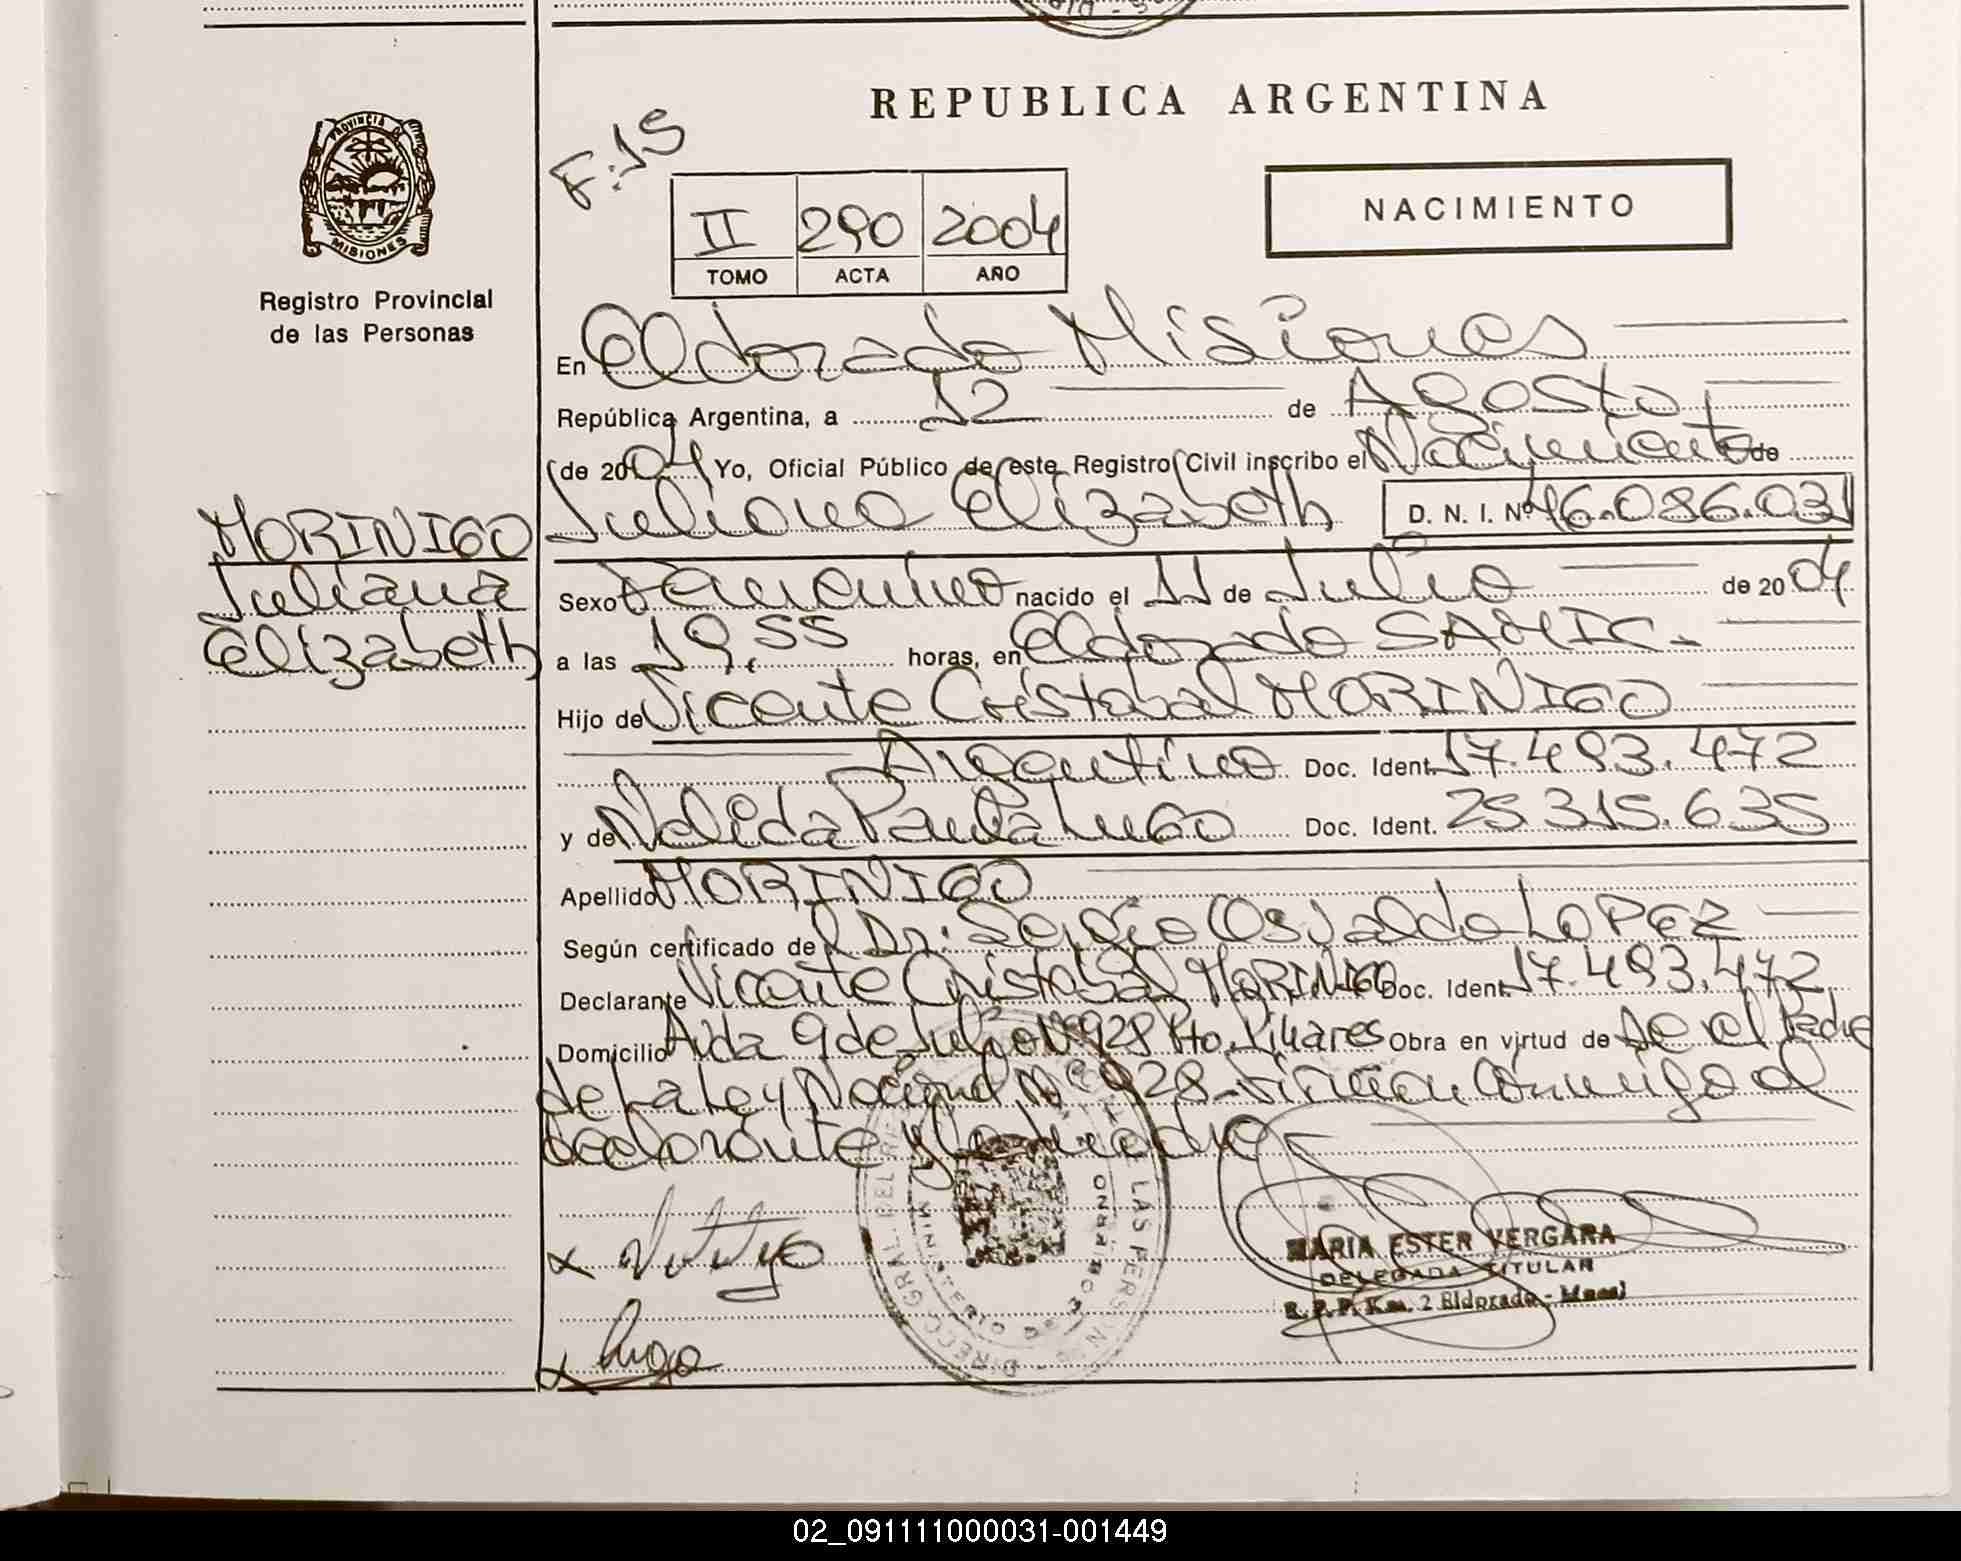 REPUBLICA ARGENTINA
F:15
PROVINCIA D
MISIONES
Registro Provincial
de las Personas
II 290 2004
TOMO ACTA AÑO
NACIMIENTO
En Eldorado Misiones
República Argentina, a 12 de Agosto
de 2004 Yo, Oficial Público de este Registro Civil inscribo el Nacimiento de
Juliana Elizabeth D. N. I. Nº 46.086.031
MORINIGO
Juliana
Elizabeth
Sexo Femenino nacido el 11 de Julio de 2004
a las 19,55 horas, en Eldorado SAMIC-
Hijo de Vicente Cristobal MORINIGO
Argentino Doc. Ident. 17.493.472
y de Nelida Paula Lugo Doc. Ident. 25.315.635
Apellido MORINIGO
Según certificado de Dr. Sergio Osvaldo LOPEZ
Declarante Vicente Cristobal MORINIGO Doc. Ident. 17.493.472
Domicilio Avda 9 de Julio Nº 928 Pto. Obra en virtud de el Padre
de La Ley Nacional Nº 928- Firman Conmigo el
declarante y la madre
MARIA ESTER VERGARA
DELEGADA TITULAR
R. P. P. Km. 2 Eldorado - Mnes)
Lugo
02_091111000031-001449